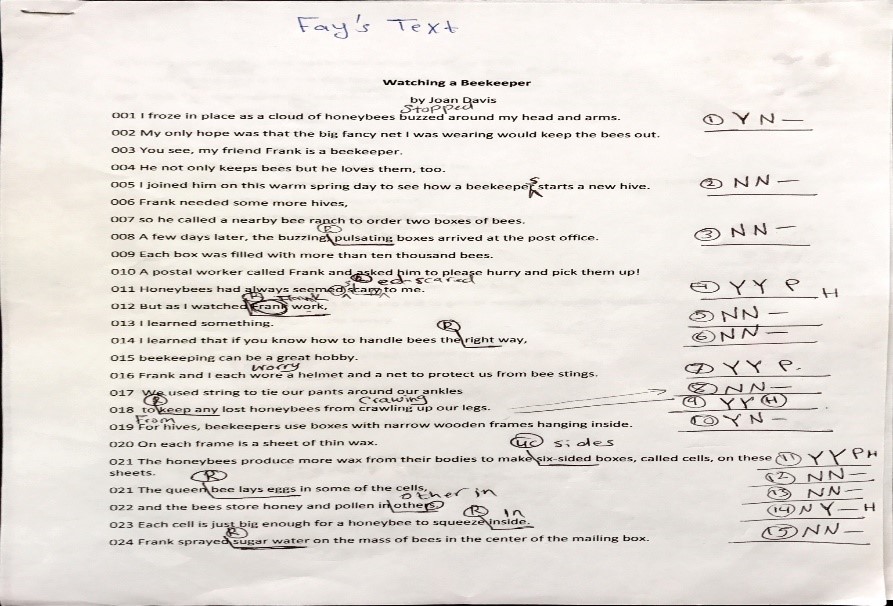 Fay's Text
Watching a Beekeeper
by Joan Davis
stopped
001 I froze in place as a cloud of honeybees buzzed around my head and arms. ① Y N —
002 My only hope was that the big fancy net I was wearing would keep the bees out.
003 You see, my friend Frank is a beekeeper.
004 He not only keeps bees but he loves them, too.
s
005 I joined him on this warm spring day to see how a beekeeper starts a new hive. ② N N —
006 Frank needed some more hives,
007 so he called a nearby bee ranch to order two boxes of bees.
R
008 A few days later, the buzzing, pulsating boxes arrived at the post office. ③ N N —
009 Each box was filled with more than ten thousand bees.
010 A postal worker called Frank and asked him to please hurry and pick them up!
R ed scared
011 Honeybees had always seemed scary to me. ④ Y Y P H
R Frank
012 But as I watched Frank work, ⑤ N N —
013 I learned something.
R
014 I learned that if you know how to handle bees the right way, ⑥ N N —
015 beekeeping can be a great hobby.
worry
016 Frank and I each wore a helmet and a net to protect us from bee stings. ⑦ Y Y P.
017 We used string to tie our pants around our ankles ⑧ N N —
R Crawing
018 to keep any lost honeybees from crawling up our legs. ⑨ Y Y H
From
019 For hives, beekeepers use boxes with narrow wooden frames hanging inside. ⑩ Y N —
020 On each frame is a sheet of thin wax.
UC sides
021 The honeybees produce more wax from their bodies to make six-sided boxes, called cells, on these ⑪ Y Y P H
sheets.
R
021 The queen bee lays eggs in some of the cells, ⑫ N N —
other in
022 and the bees store honey and pollen in others. ⑬ N N —
R in
023 Each cell is just big enough for a honeybee to squeeze inside. ⑭ N Y — H
R
024 Frank sprayed sugar water on the mass of bees in the center of the mailing box. ⑮ N N —